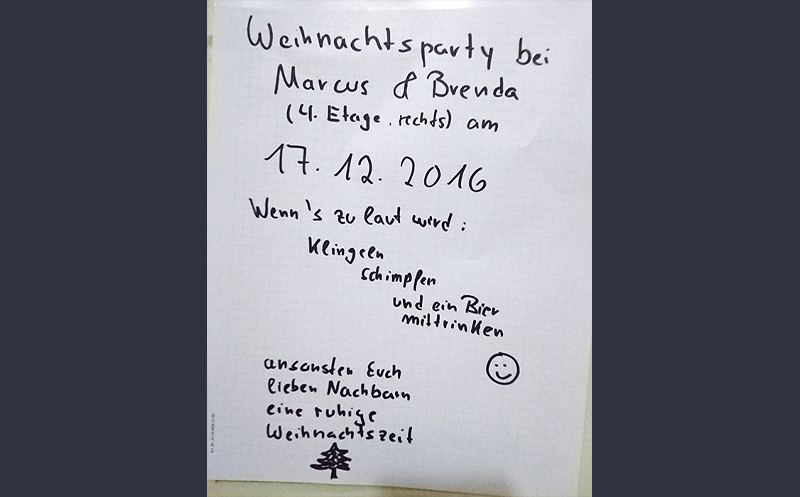 Weihnachtsparty bei
Marcus & Brenda
(4. Etage. rechts) am
17. 12. 2016
Wenn's zu laut wird:
Klingeln
schimpfen
und ein Bier
mittrinken
ansonsten Euch
lieben Nachbarn
eine ruhige
Weihnachtszeit